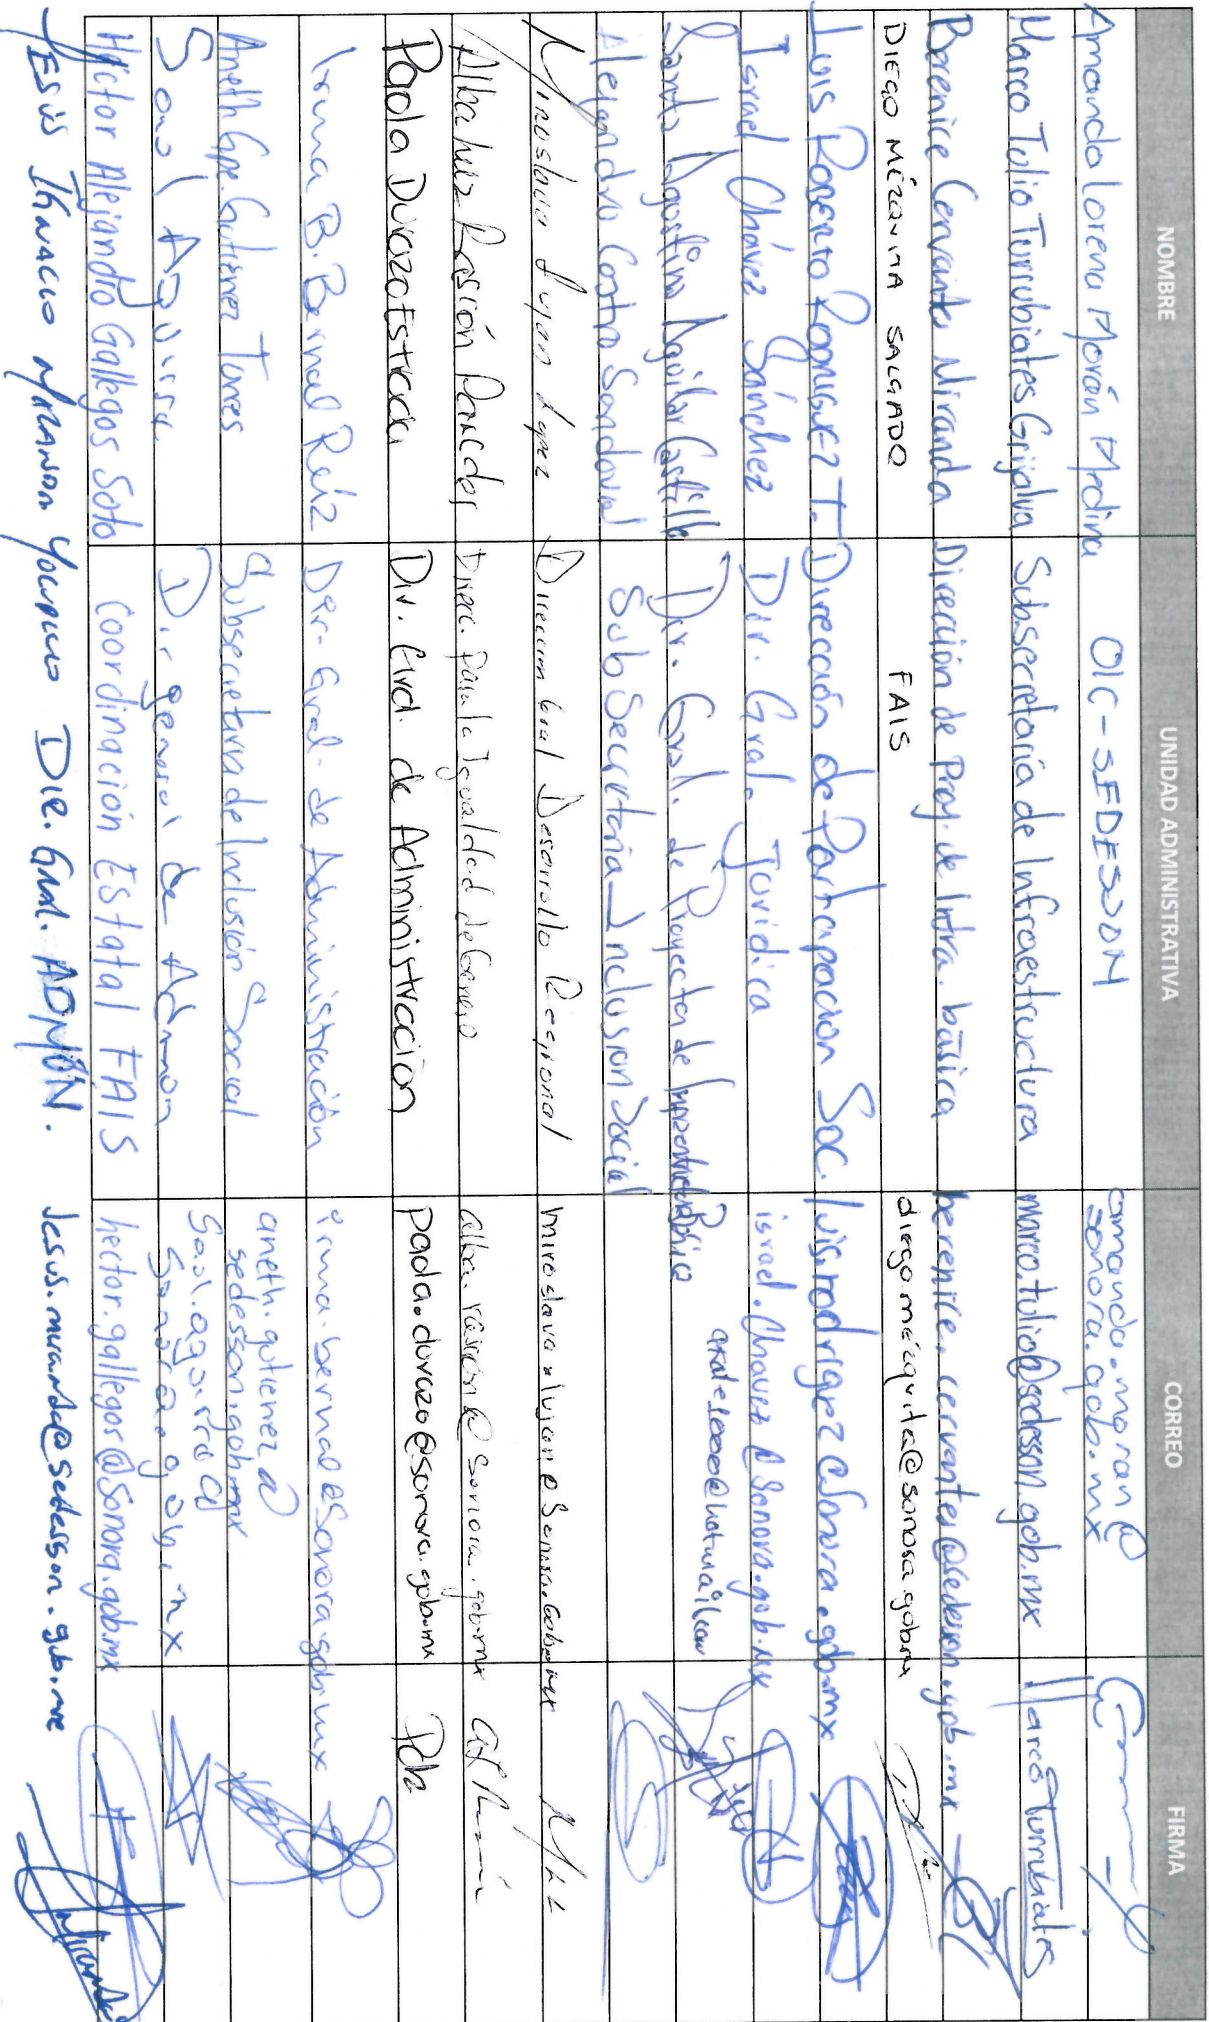 NOMBRE UNIDAD ADMINISTRATIVA CORREO FIRMA
Amanda Lorena Morán Medina OIC-SEDESSON amanda.moran@
sonora.gob.mx
Marco Tulio Turrubiates Grijalva Subsecretaría de Infraestructura marco.tulio@sedesson.gob.mx Marco Turrubiates
Berenice Cervantes Miranda Dirección de Proy. de Infra. básica berenice.cervantes@sedesson.gob.mx
DIEGO MÉZQUITA SALGADO FAIS diego.mezquita@sonora.gob.mx
Luis ROBERTO RODRIGUEZ T. Dirección de Participación Soc. luis.rodriguez@sonora.gob.mx
Israel Chávez Sánchez Dir. Gral. Jurídica israel.chavez@sonora.gob.mx
Santos Agostino Aguilar Castillo Dir. Gral. de Proyectos de
@hotmail.com
Alejandro Castro Sandoval SubSecretaria Inclusion Social
Miroslava Lujan Lopez Direccion Gral Desarrollo Regional miroslava.lujan@sonora.gob.mx MLL
Alba Luz Rascón Paredes Direcc. para la Igualdad de Genero alba.rascon@sonora.gob.mx
Paola Durazo Estrada Dir. Gral. de Administracion paola.durazo@sonora.gob.mx
Irma B. Bernal Reiz Dir. Gral. de Administración irma.bernal@sonora.gob.mx
Aneth Gpe. Gutierrez Torres Subsecretaria de Inclusión Social aneth.gutierrez@
sedesson.gob.mx
Saul Aguirre Dir general de Admon Saul.aguirre@
Sonora.gob.mx
Héctor Alejandro Gallegos Soto Coordinación Estatal FAIS hector.gallegos@sonora.gob.mx
Jesús Ignacio Yocupicio DIR. Gral. ADMÓN. Jesus.miranda@sedesson.gob.mx